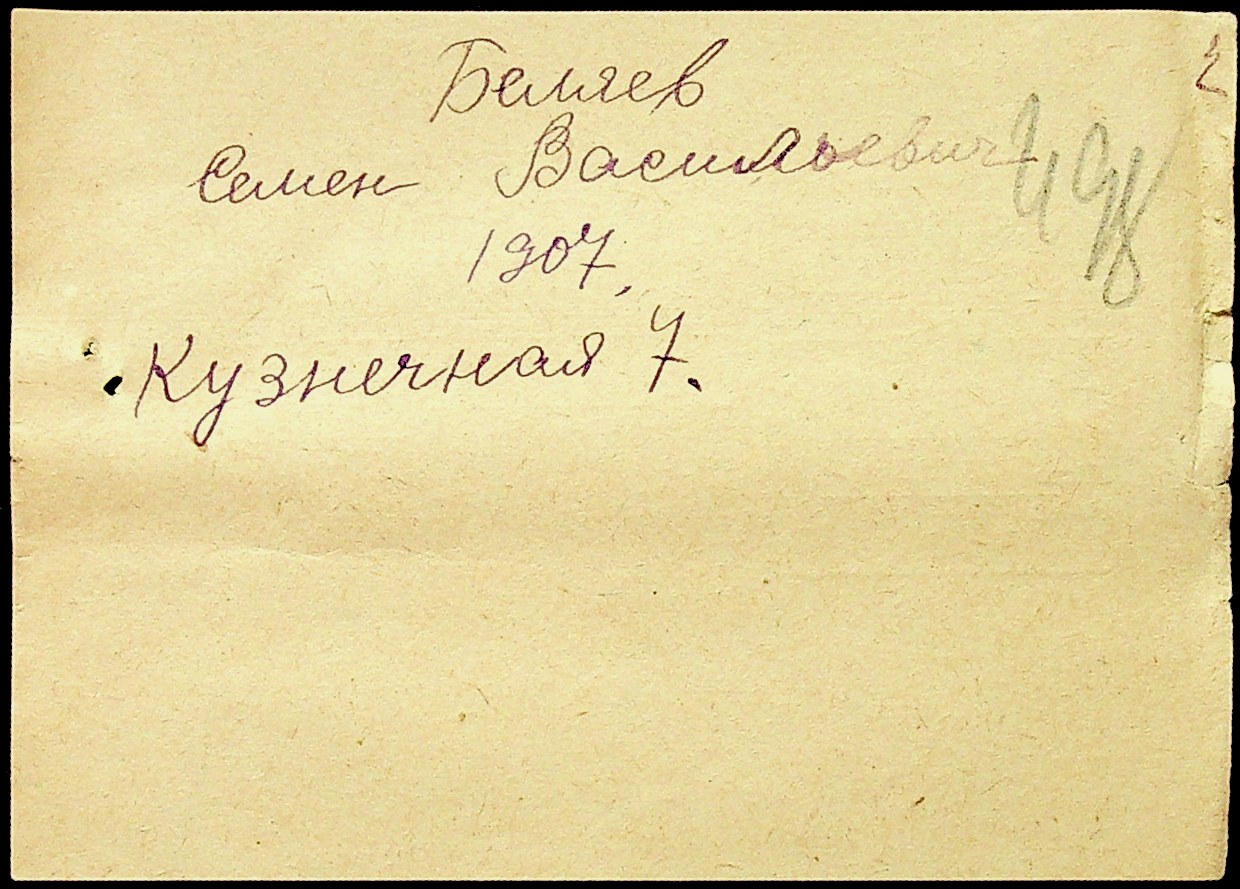 2
Беляев
Семен Васильевич
1907,
Кузнечная 7.